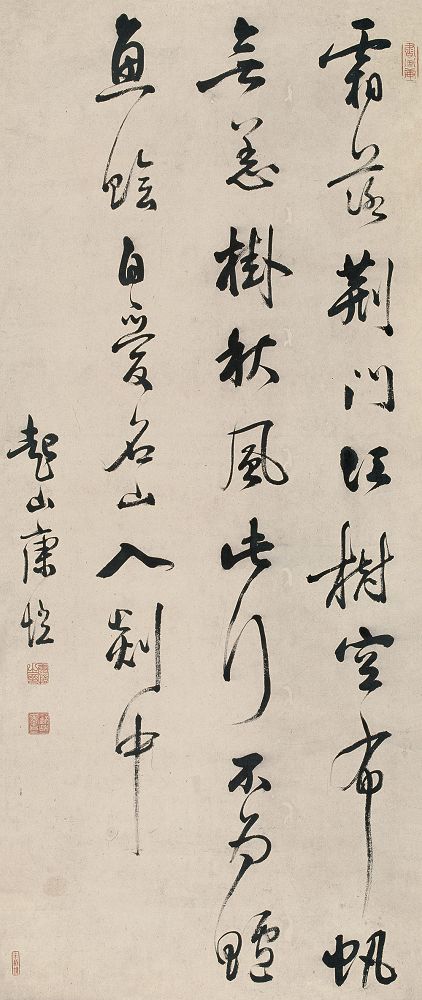 霜落荊門江樹空布帆
無恙掛秋風此行不為鱸
魚鱠自愛名山入剡中
起山康愷